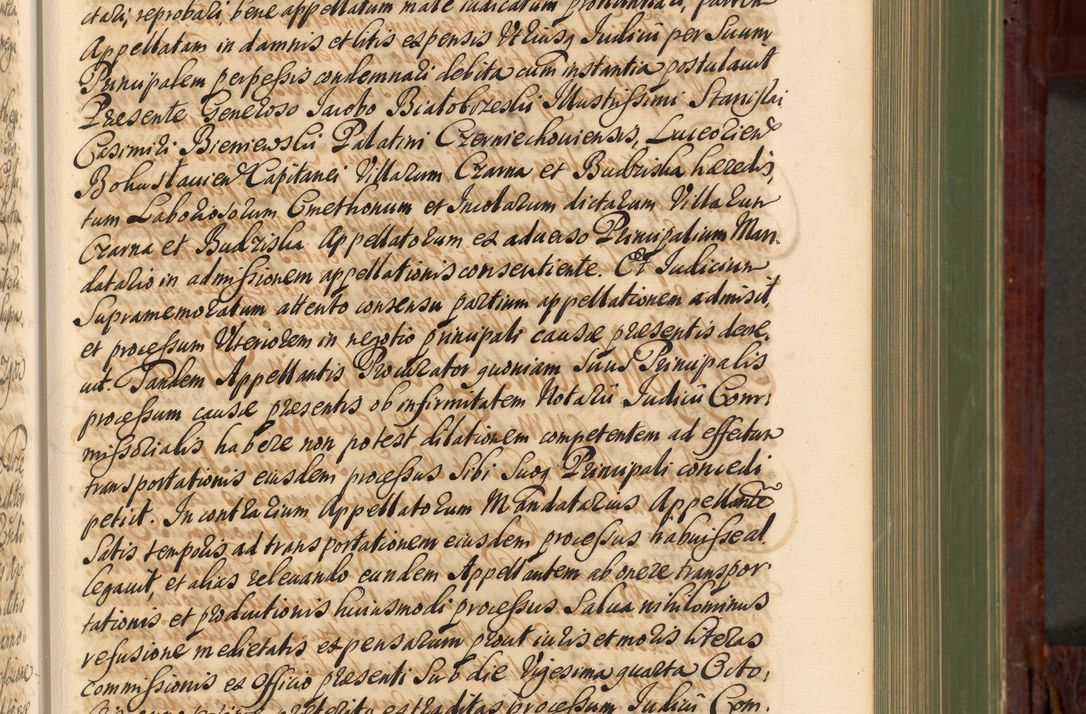 ctari, reprobari, bene appellatum male iudicatum pronuntiari, partem
Appellatam in damnis et litis expensis Utriusq Iudicii per Suum
Principalem perpessis condemnari debita cum instantia postulavit
Presente Generoso Iacobo Białobrzeski Illustrissimi Stanislai
Casimiri Bieniewski Palatini Czerniechoviensis, Luceorien
Bohuslavien Capitanei Villarum Czarna et Budziska hæredis,
tum Laboriosorum Cmethonum et Incolarum dictarum Villarum
Czarna et Budziska Appellatorum ex adverso Principalium Man
datario in admissionem appellationis consentiente. Et Iudicium
Supramemoratum attento consensu partium appellationem admisit,
et processum Ulteriorem in negotio principali causæ presentis decre
vit. Tandem Appellantis Procurator quoniam Suus Principalis
processum causæ presentis ob infirmitatem Notarii Iudicii Com:
missorialis habere non potest dilationem competentem ad effectum
transportationis eiusdem processus Sibi Suoq Principali concedi
petiit. In contrarium Appellatorum Mandatarius Appellante
Satis temporis ad transportationem eiusdem processus habuisse al
legavit, et alias relevando eundem Appellantem ab onere transpor
tationis et productionis huiusmodi processus Salva nihilominus
refusione medietatis expensarum prout iuris et moris literas
commissionis ex officio presenti Sub die Vigesima quarta Octo:
præterito extraditas processum Iudicii Com: